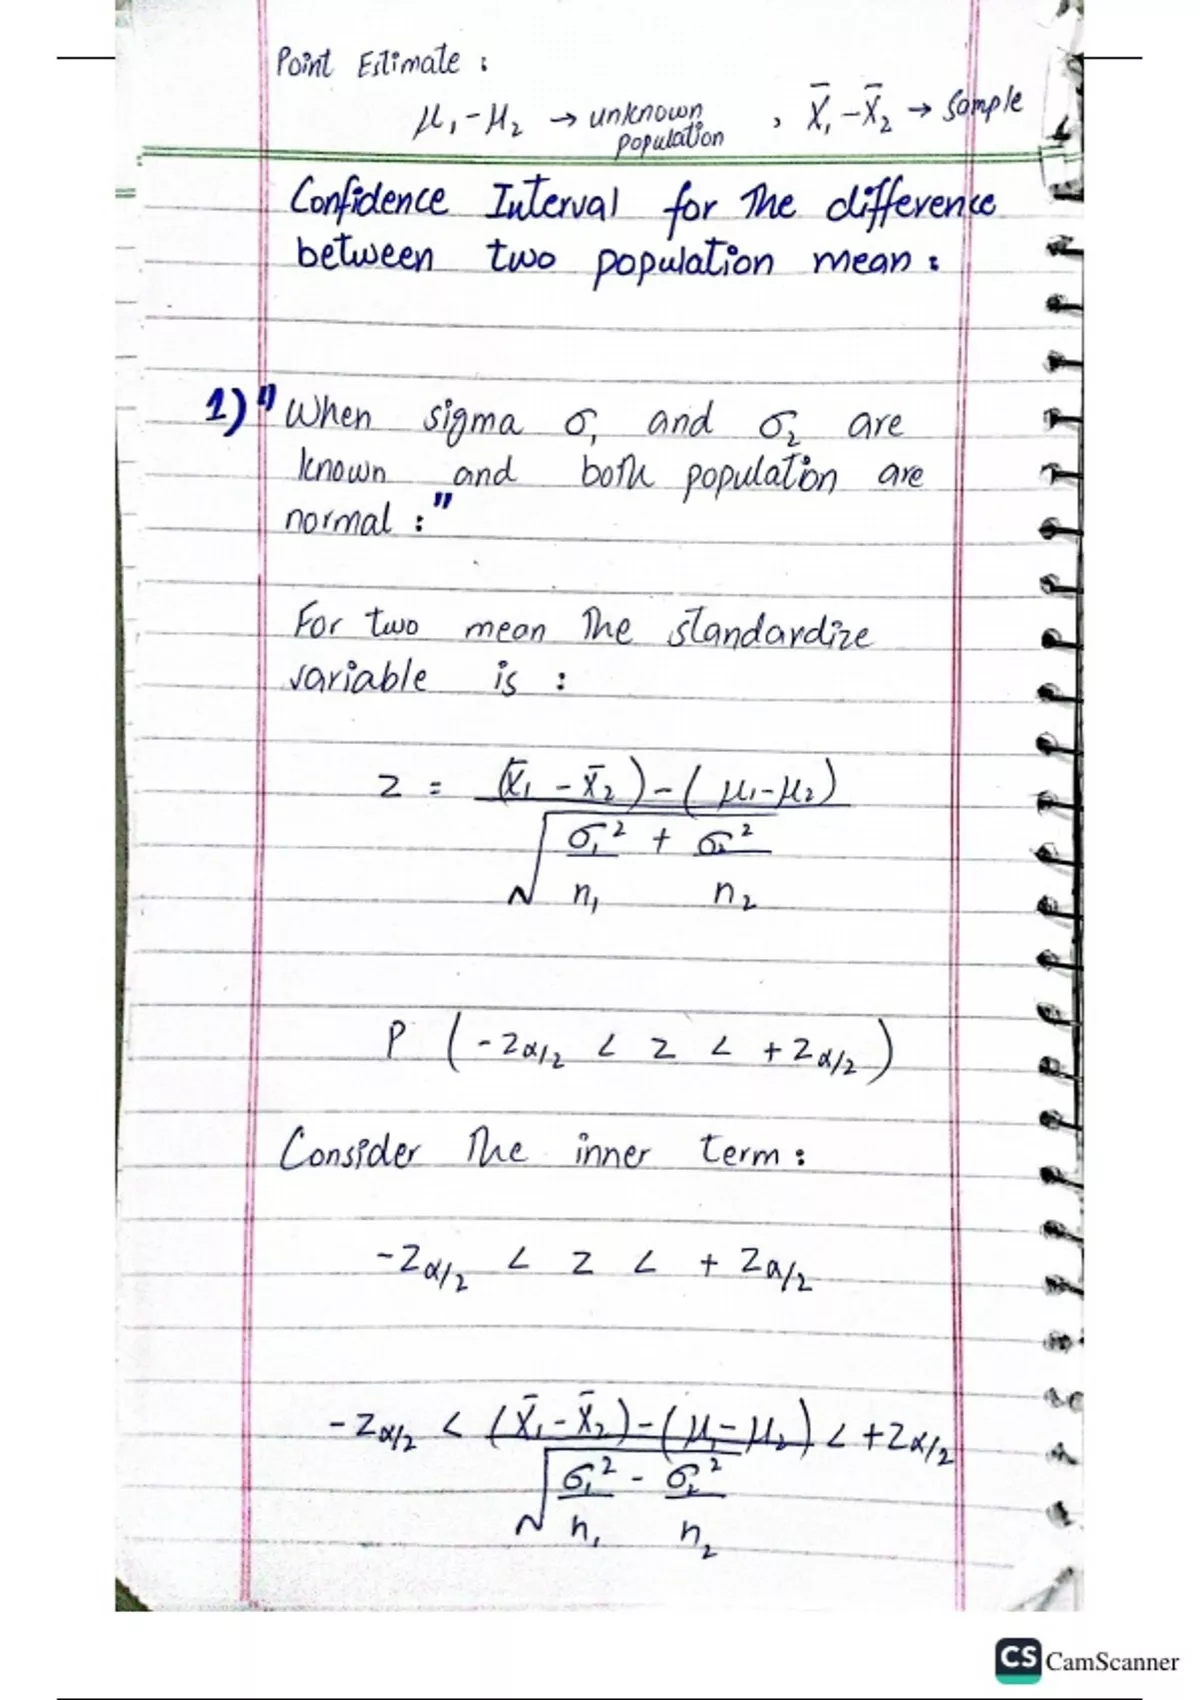 Point Estimate :
μ₁-μ₂ → unknown population , X̄₁-X̄₂ → Sample
Confidence Interval for the difference
between two population mean :
1) " When sigma σ₁ and σ₂ are
known and both population are
normal : "
For two mean the standardize
variable is :
z = (x̄₁ - x̄₂) - (μ₁-μ₂)
√ σ₁² + σ₂²
n₁ n₂
P ( -zα/2 < z < +zα/2 )
Consider the inner term :
-zα/2 < z < + zα/2
-zα/2 < (X̄₁-X̄₂)-(μ₁-μ₂) < +zα/2
√ σ₁² - σ₂²
n₁ n₂
CS CamScanner